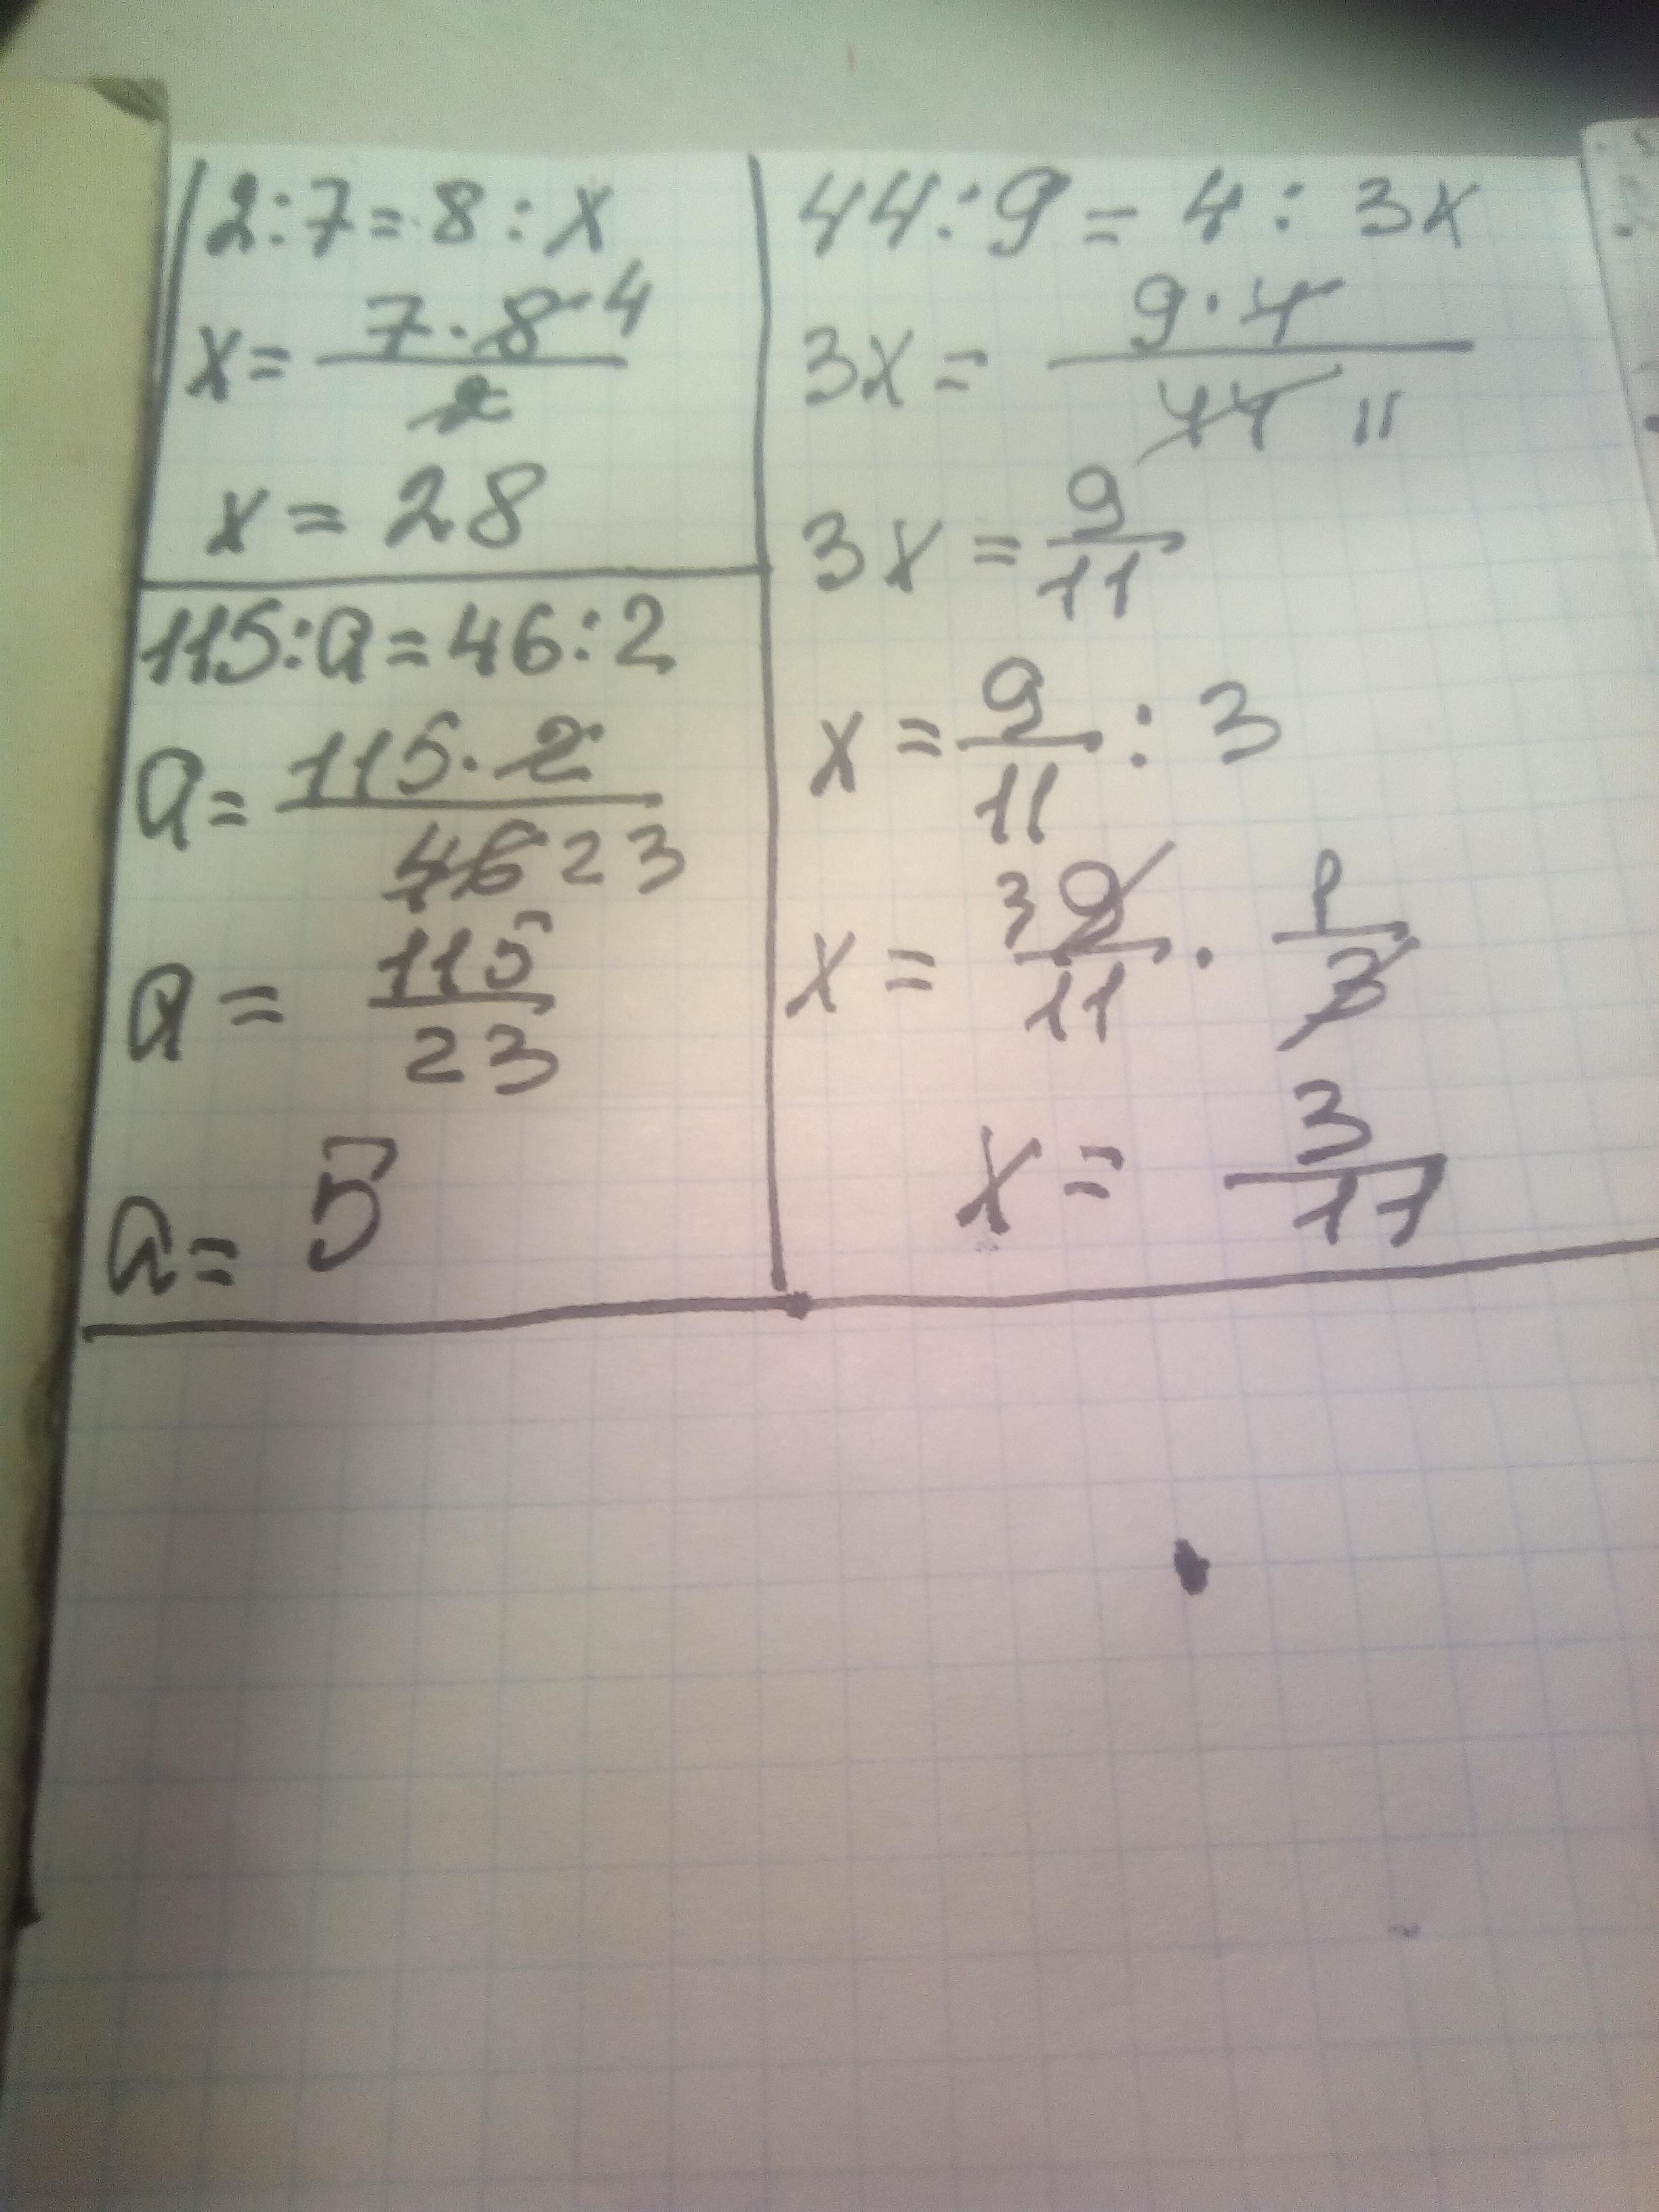 2:7=8:x
x= 7·8 4 / 2
x=28
115:a=46:2
a= 115·2 / 46 23
a= 115/23
a=5
44:9=4:3x
3x= 9·4 / 44 11
3x= 9/11
x= 9/11 : 3
x= 3 9/11 · 1/3
x= 3/11